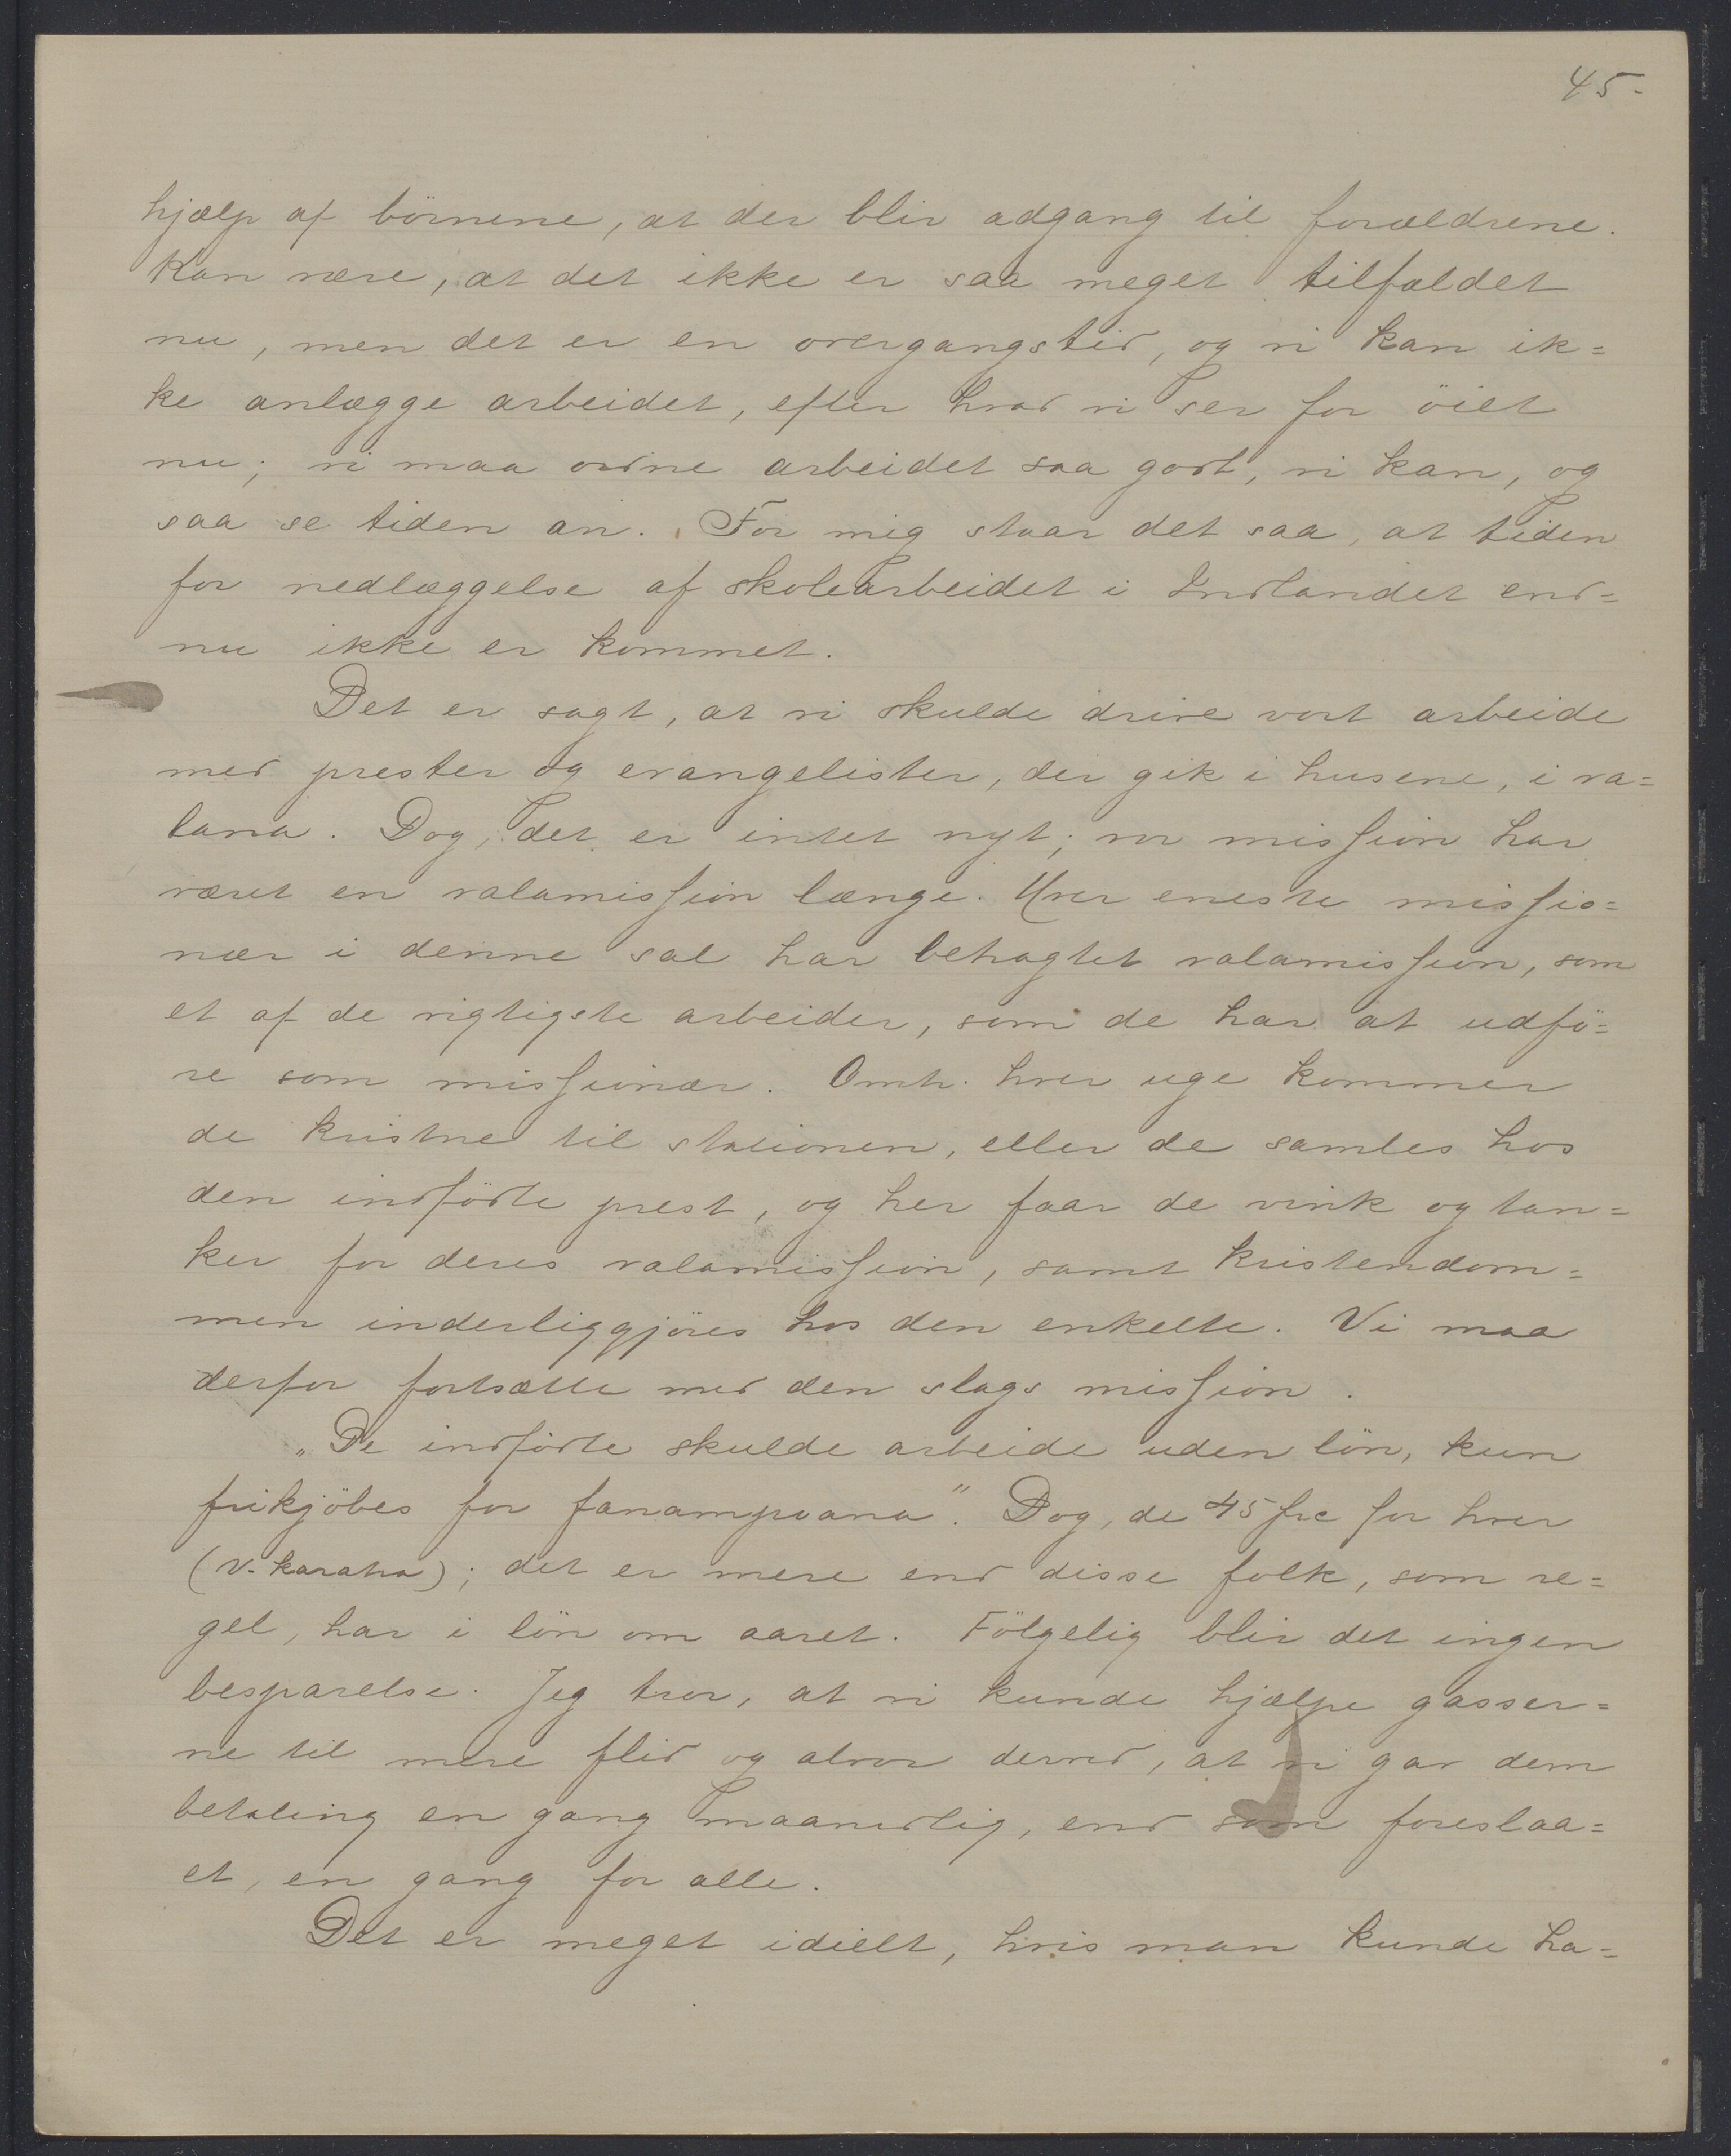 45.
hjælp af börnene, at der blir adgang til forældrene.
Kan være, at det ikke er saa meget tilfældet
nu, men det er en overgangstid, og vi kan ik=
ke anlægge arbeidet, efter hvad vi ser for öiet
nu; vi maa ordne arbeidet saa godt, vi kan, og
saa se tiden an. For mig staar det saa, at tiden
for nedlæggelse af skolearbeidet i Indlandet end=
nu ikke er kommet.
Det er sagt, at vi skulde drive vort arbeide
med prester og evangelister, der gik i husene, i va=
lana. Dog, det er intet nyt; vor mission har
været en valamission længe. Hver eneste missio=
nær i denne sal har betragtet valamission, som
et af de vigtigste arbeider, som de har at udfö=
re som missionær. Omtr. hver uge kommer
de kristne til stationen, eller de samles hos
den indfödte prest, og her faar de vink og tan=
ker for deres valamission, samt kristendom=
men inderliggjöres hos den enkelte. Vi maa
derfor fortsætte med den slags mission.
„De indfödte skulde arbeide uden lön, kun
frikjöbes for fanampoana". Dog, de 45 frc for hver
(V. karatra); det er mere end disse folk, som re=
gel, har i lön om aaret. Fölgelig blir det ingen
besparelse. Jeg tror, at vi kunde hjælpe gasser=
ne til mere flid og alvor derved, at vi gav dem
betaling en gang maanedlig, end som foreslaa=
et, en gang for alle.
Det er meget idielt, hvis man kunde ha=